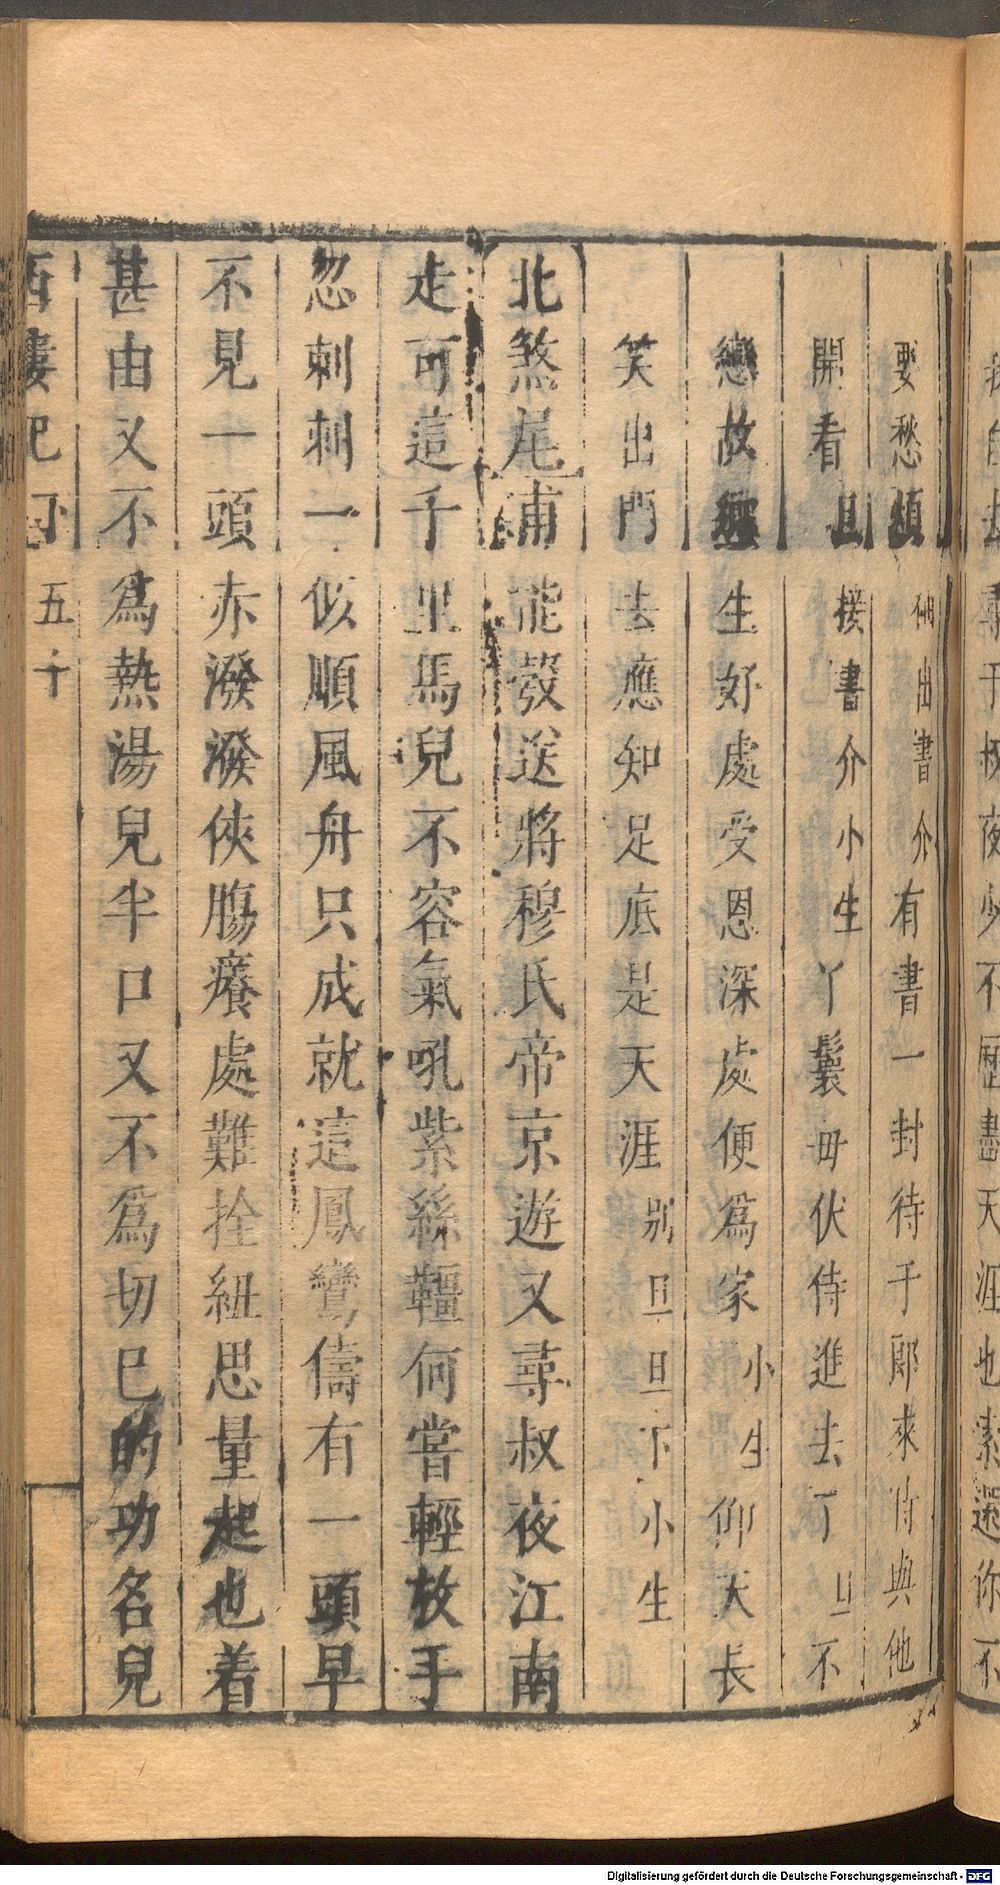 要愁煩 出書介 有書一封待于郎來時與他
開看 旦 接書介 小生 丫鬟毋伏侍進去了 旦 不
戀故 生好處受恩深處便爲家 小生 仰天長
笑出門去應知足底是天涯 別旦 旦下 小生
北煞尾 甫能彀送將穆氏帝京遊又尋叔夜江南
走可這千里馬兒不容氣吼紫絲韁何嘗輕放手
忽刺刺一似順風舟只成就這鳳鸞儔有一頭早
不見一頭赤潑潑俠膓癢處難拴紐思量起也着
甚由又不爲熱湯兒半口又不爲切已的功名兒
西樓記 下 五十
尋于叔夜少不 天涯也索還你不
Digitalisierung gefördert durch die Deutsche Forschungsgemeinschaft - DFG